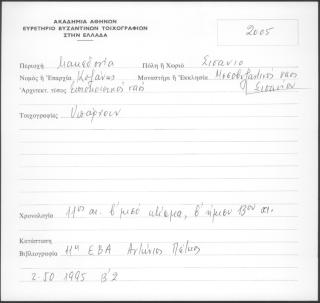 ΑΚΑΔΗΜΙΑ ΑΘΗΝΩΝ
ΕΥΡΕΤΗΡΙΟ ΒΥΖΑΝΤΙΝΩΝ ΤΟΙΧΟΓΡΑΦΙΩΝ
ΣΤΗΝ ΕΛΛΑΔΑ
2005
Περιοχή Μακεδονία Πόλη ἢ Χωριό Σισάνιο
Νομός ἢ Ἐπαρχία Κοζάνης Μοναστήρι ἢ Ἐκκλησία Μεσοβυζαντινός ναός
Ἀρχιτεκτ. τύπος ἐπισκοπικός ναός Σισανίου
Τοιχογραφίες Υπάρχουν
Χρονολογία 11ος αι. β' μισό κτίσμα, β' ήμισυ 13ου αι.
Κατάσταση
Βιβλιογραφία 11η ΕΒΑ Αντώνιος Πέτκος
2-50 1995 Β'2